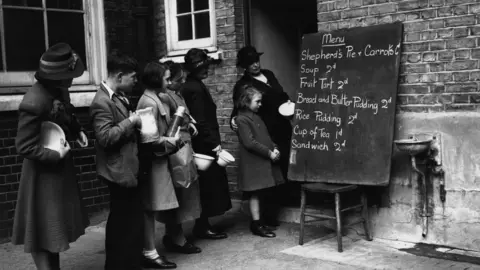 Menu
Shepherd's Pie & Carrots
Soup 2d
Fruit Tart 2d
Bread and Butter Pudding 2d
Rice Pudding 2d
Cup of Tea 1d
Sandwich 2d